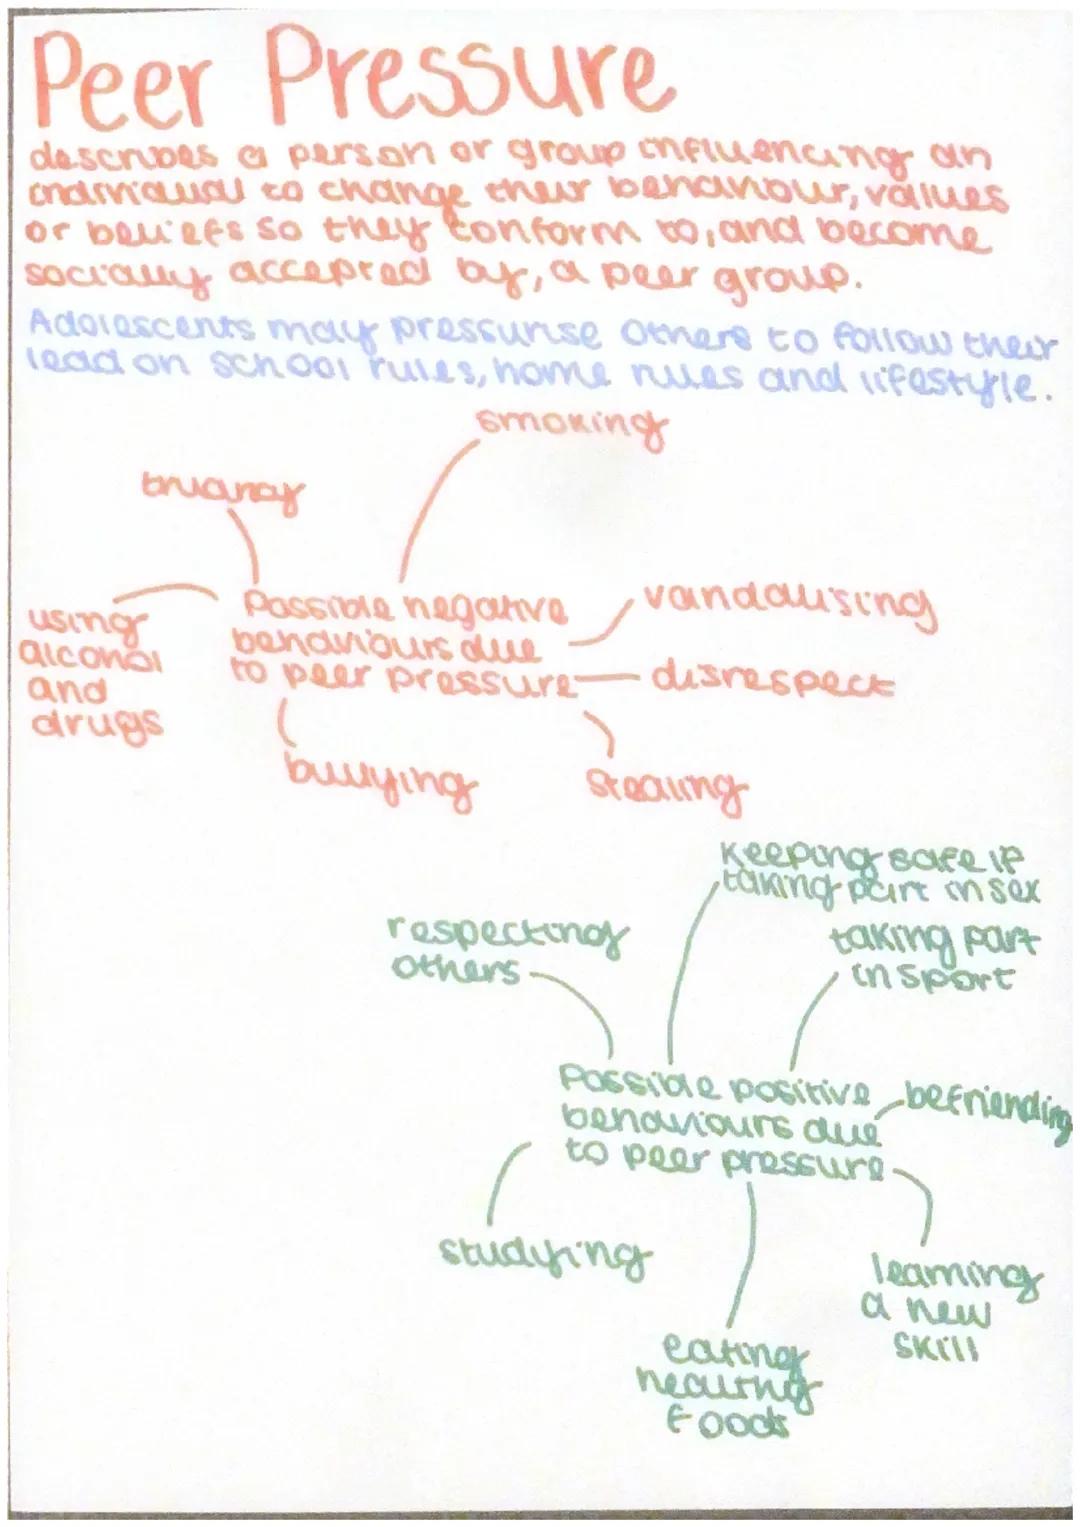 Peer Pressure
describes a person or group influencing an
individual to change their behaviour, values
or beliefs so they conform to, and become
socially accepted by, a peer group.
Adolescents may pressurise others to follow their
lead on school rules, home rules and lifestyle.
smoking
truanay
using
alcohol
and
drugs
Possible negative
behaviours due
to peer pressure
vandalising
disrespect
bullying
stealing
Keeping safe if
taking part in sex
respecting
others
taking part
in sport
Possible positive
behaviours due
to peer pressure
befriending
studying
learning
a new
skill
eating
healthy
foods